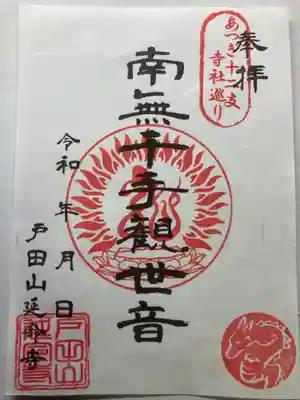 奉拝
あつぎ十二支
寺社巡り
南無千手観世音
令和 年 月 日
戸田山
延命寺